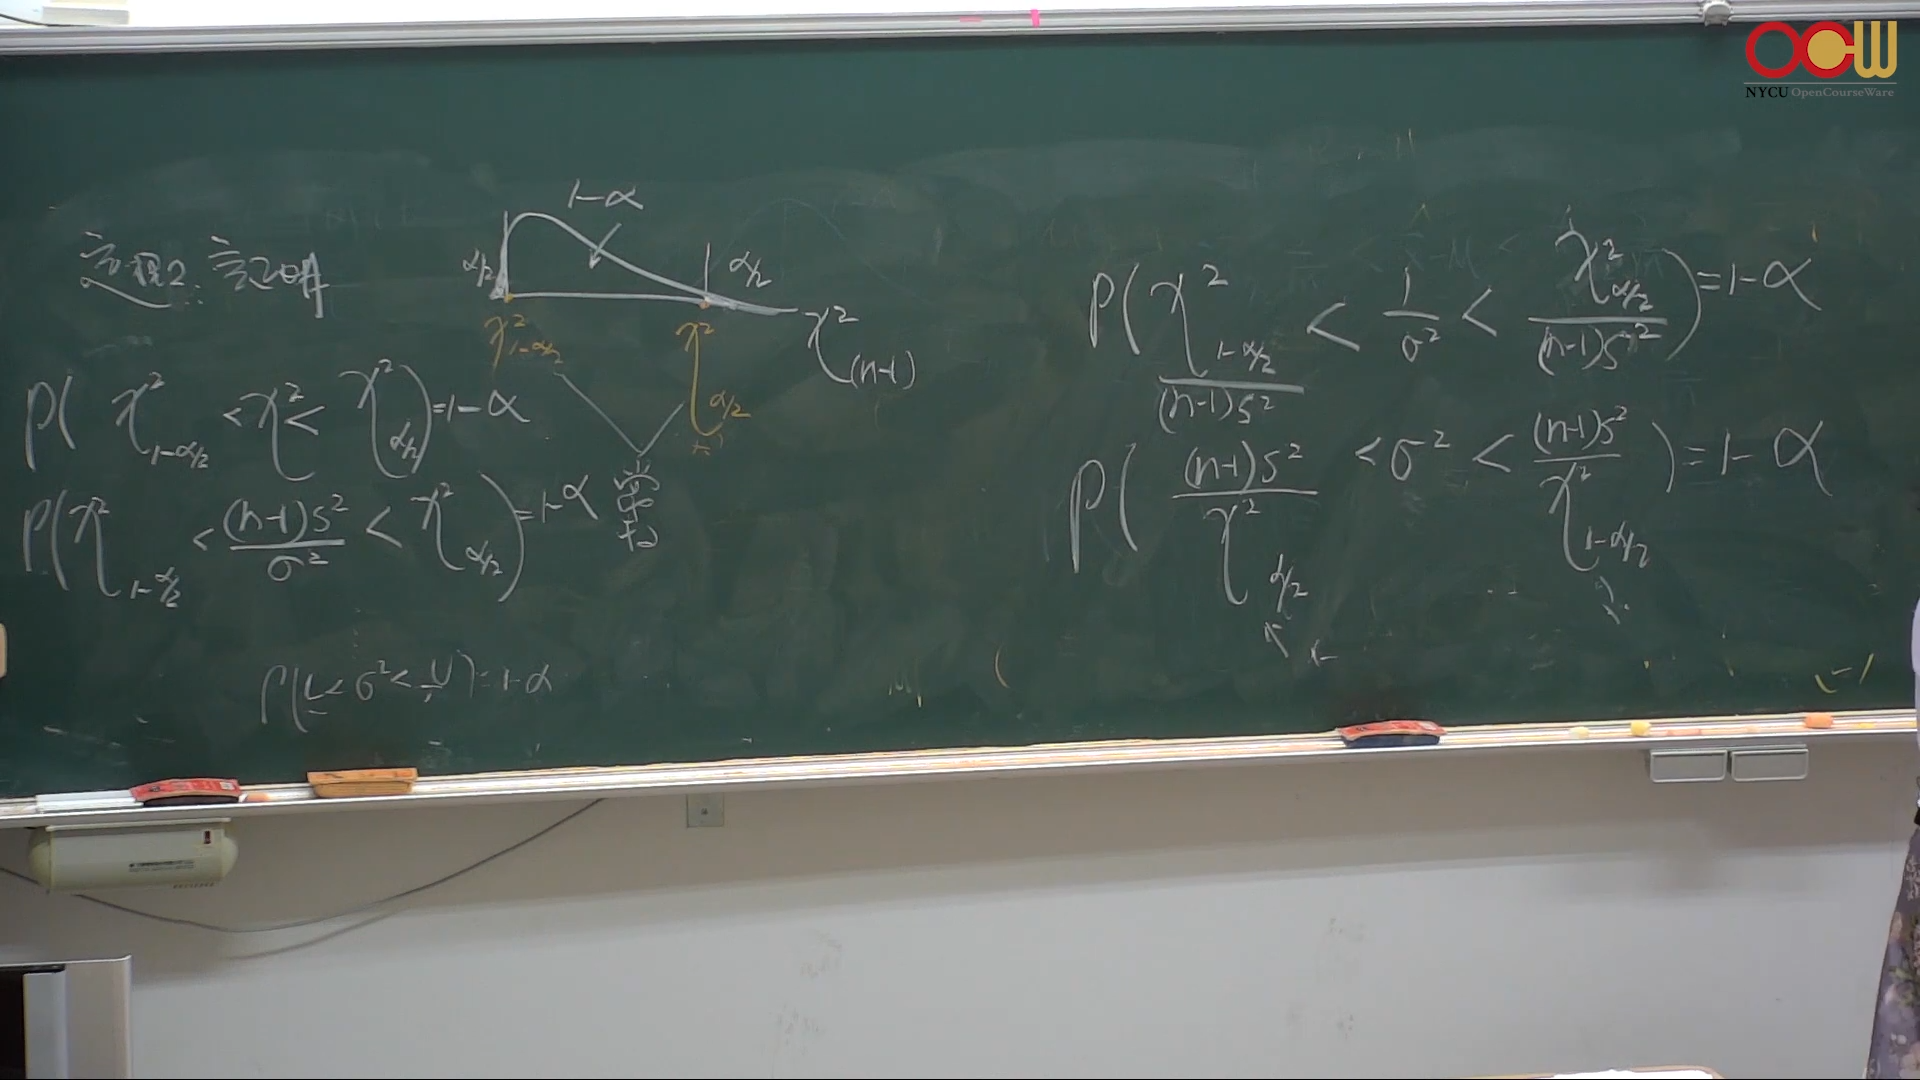 OCW
NYCU OpenCourseWare
定理2: 証明
1-α
α/2
α/2
χ²_{1-α/2}
χ²_{α/2}
χ²_{(n-1)}
常
P( χ²_{1-α/2} < χ² < χ²_{α/2} ) = 1-α
P( χ²_{1-α/2} < (n-1)S²/σ² < χ²_{α/2} ) = 1-α
P( L < σ² < U ) = 1-α
P( χ²_{1-α/2}/(n-1)S² < 1/σ² < χ²_{α/2}/(n-1)S² ) = 1-α
P( (n-1)S²/χ²_{α/2} < σ² < (n-1)S²/χ²_{1-α/2} ) = 1-α